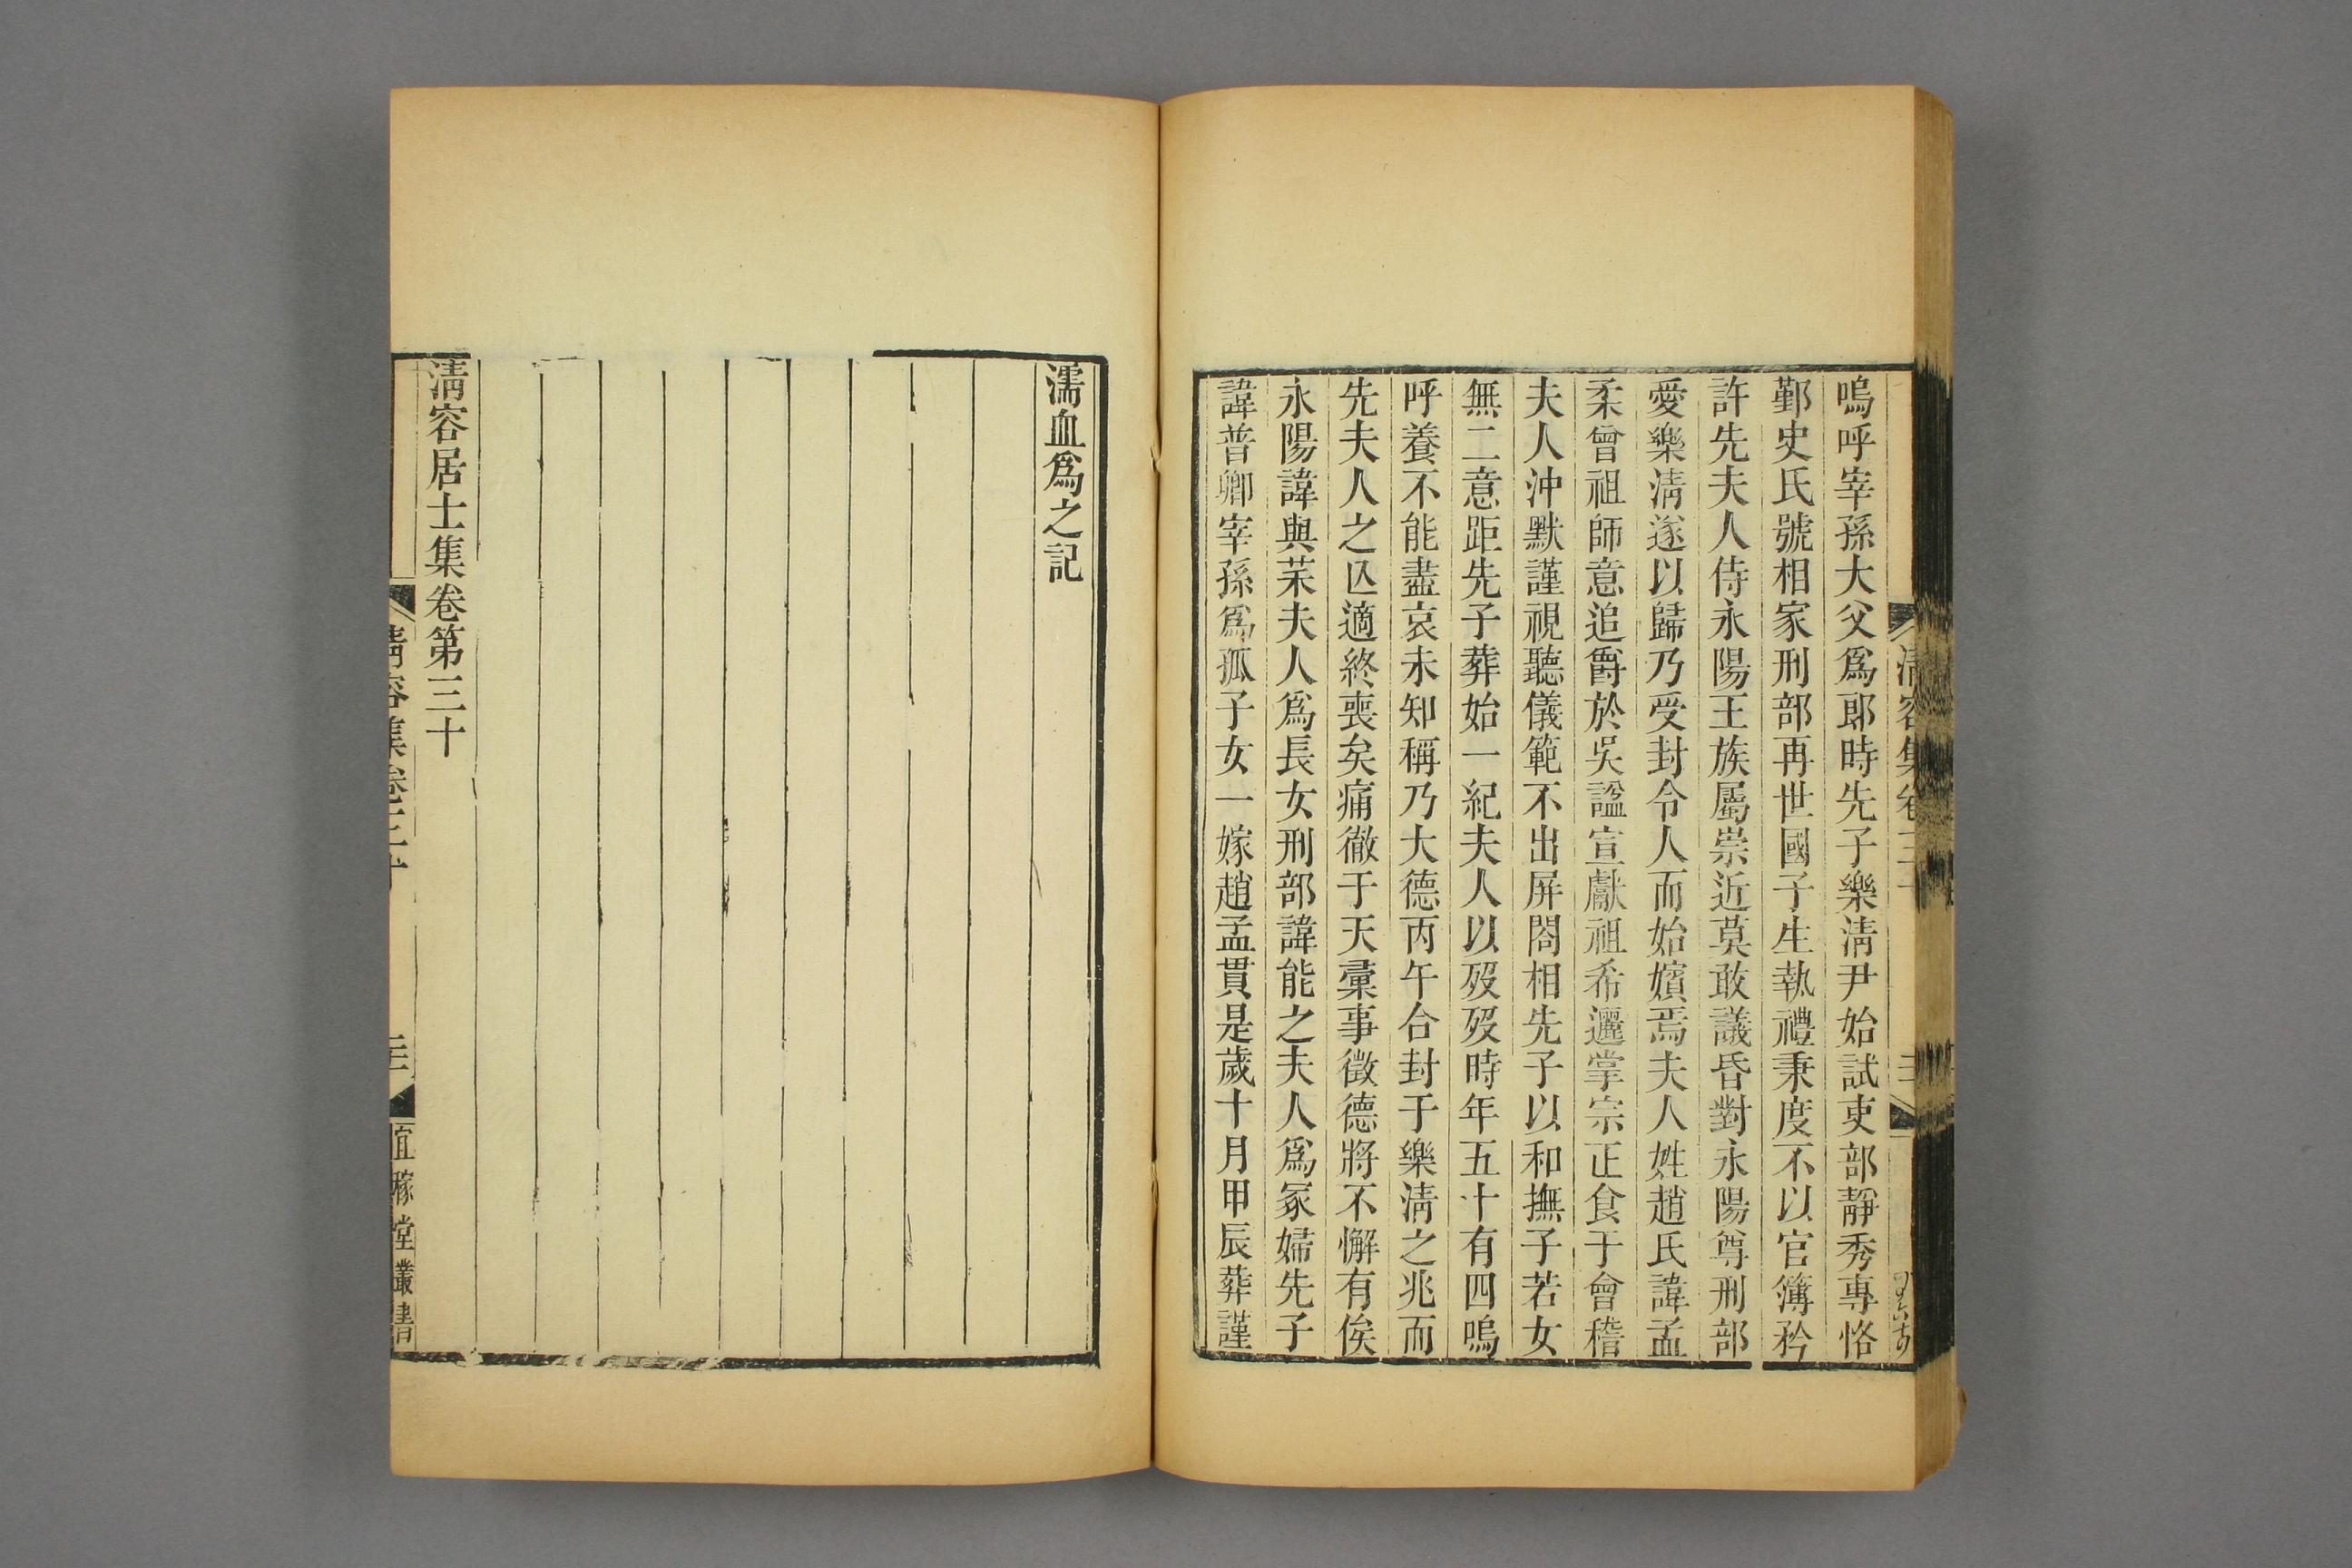 嗚呼宰孫大父爲郎時先子樂淸尹始試吏部靜秀專恪
鄞史氏號相家刑部再世國子生執禮秉度不以官簿矜
許先夫人侍永陽王族屬崇近莫敢議昏對永陽尊刑部
愛樂淸遂以歸乃受封令人而始嬪焉夫人姓趙氏諱孟
柔曾祖師意追爵於吳諡宣獻祖希邏掌宗正食于會稽
夫人沖默謹視聽儀範不出屏閤相先子以和撫子若女
無二意距先子葬始一紀夫人以歿歿時年五十有四嗚
呼養不能盡哀未知稱乃大德丙午合封于樂淸之兆而
先夫人之亾適終喪矣痛徹于天彚事徵德將不懈有俟
永陽諱與茉夫人爲長女刑部諱能之夫人爲冢婦先子
諱普卿宰孫爲孤子女一嫁趙孟貫是歲十月甲辰葬謹
濡血爲之記
淸容居士集卷第三十
淸容集卷三十
宜稼堂叢書